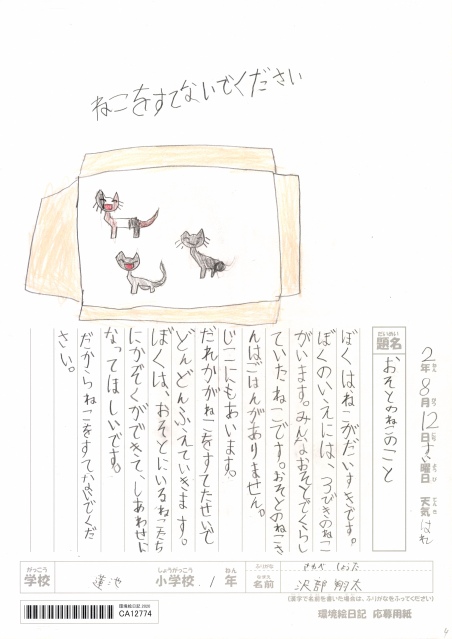 ねこをすてないでください
2年8月12日すい曜日 天気はれ
ねん がつ にち ようび てんき
だいめい
題名
おそとのねこのこと
ぼくはねこがだいすきです。
ぼくのいえには、3びきのねこ
がいます。みんなおそとでくらし
ていたねこです。おそとのねこさ
んはごはんがありません。
じこにもあいます。
だれかがねこをすてたせいで
どんどんふえていきます。
ぼくは、おそとにいるねこたち
にかぞくができて、しあわせに
なってほしいです。
だからねこをすてないでくだ
さい。
がっこう しょうがっこう ねん
学校 蓮池 小学校 1 年
ふりがな さわべ しょうた
なまえ
名前 沢部 翔太
(漢字で名前を書いた場合は、ふりがなをふってください)
環境絵日記 2020
CA12774
環境絵日記 応募用紙